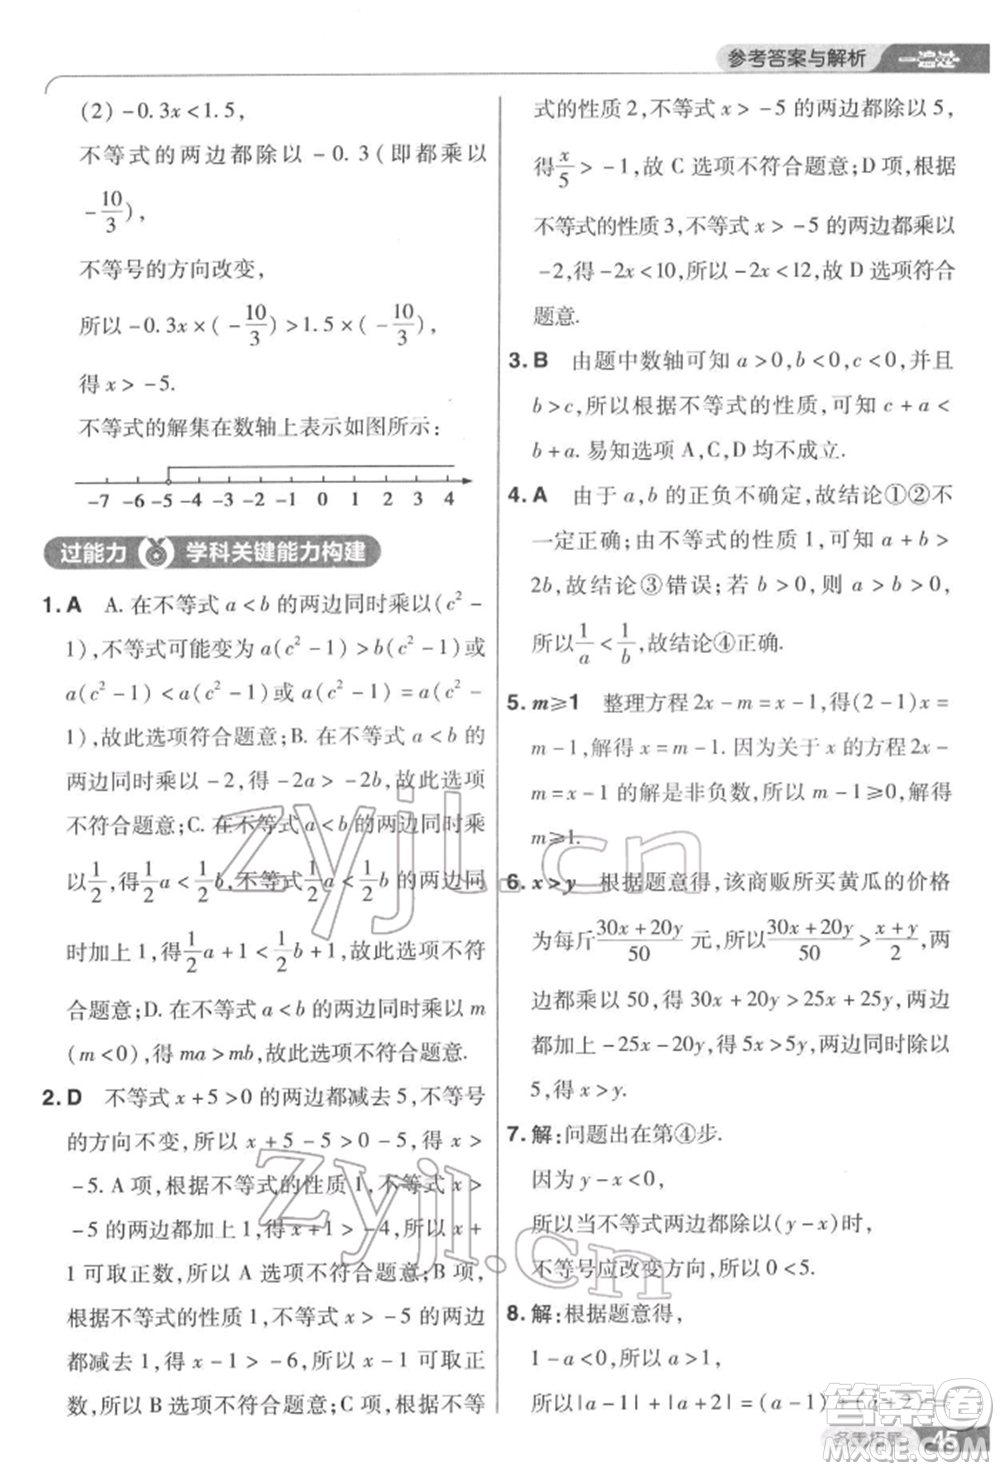 参考答案与解析 一遍过
(2) -0.3x<1.5,
不等式的两边都除以 -0.3(即都乘以
-10/3),
不等号的方向改变,
所以 -0.3x×(-10/3)>1.5×(-10/3),
得 x>-5.
不等式的解集在数轴上表示如图所示:
-7 -6 -5 -4 -3 -2 -1 0 1 2 3 4
过能力 学科关键能力构建
1. A A. 在不等式 a<b 的两边同时乘以(c²-
1),不等式可能变为 a(c²-1)>b(c²-1)或
a(c²-1)<a(c²-1)或 a(c²-1)=a(c²-
1),故此选项符合题意;B. 在不等式 a<b 的
两边同时乘以 -2,得 -2a>-2b,故此选项
不符合题意;C. 在不等式 a<b 的两边同时乘
以1/2,得1/2a<1/2b,不等式1/2a<1/2b 的两边同
时加上 1,得1/2a+1<1/2b+1,故此选项不符
合题意;D. 在不等式 a<b 的两边同时乘以 m
(m<0),得 ma>mb,故此选项不符合题意.
2. D 不等式 x+5>0 的两边都减去 5,不等号
的方向不变,所以 x+5-5>0-5,得 x>
-5. A 项,根据不等式的性质 1,不等式 x>
-5 的两边都加上 1,得 x+1>-4,所以 x+
1 可取正数,所以 A 选项不符合题意;B 项,
根据不等式的性质 1,不等式 x>-5 的两边
都减去 1,得 x-1>-6,所以 x-1 可取正
数,所以 B 选项不符合题意;C 项,根据不等
式的性质 2,不等式 x>-5 的两边都除以 5,
得x/5>-1,故 C 选项不符合题意;D 项,根据
不等式的性质 3,不等式 x>-5 的两边都乘以
-2,得 -2x<10,所以 -2x<12,故 D 选项符合
题意.
3. B 由题中数轴可知 a>0,b<0,c<0,并且
b>c,所以根据不等式的性质,可知 c+a<
b+a. 易知选项 A,C,D 均不成立.
4. A 由于 a,b 的正负不确定,故结论①②不
一定正确;由不等式的性质,可知 a+b>
2b,故结论③错误;若 b>0,则 a>b>0,
所以1/a<1/b,故结论④正确.
5. m≥1 整理方程 2x-m=x-1,得(2-1)x=
m-1,解得 x=m-1. 因为关于 x 的方程 2x-
m=x-1 的解是非负数,所以 m-1≥0,解得
m≥1.
6. x>y 根据题意得,该商贩所买黄瓜的价格
为每斤(30x+20y)/50 元,所以(30x+20y)/50>(x+y)/2,两
边都乘以 50,得 30x+20y>25x+25y,两边
都加上 -25x-20y,得 5x>5y,两边同时除以
5,得 x>y.
7. 解:问题出在第④步.
因为 y-x<0,
所以当不等式两边都除以(y-x)时,
不等号应改变方向,所以 0<5.
8. 解:根据题意得,
1-a<0,所以 a>1,
所以|a-1|+|a+2|=(a-1)+(a+2)=
45
zyjl.cn
zyjl.cn
答案卷